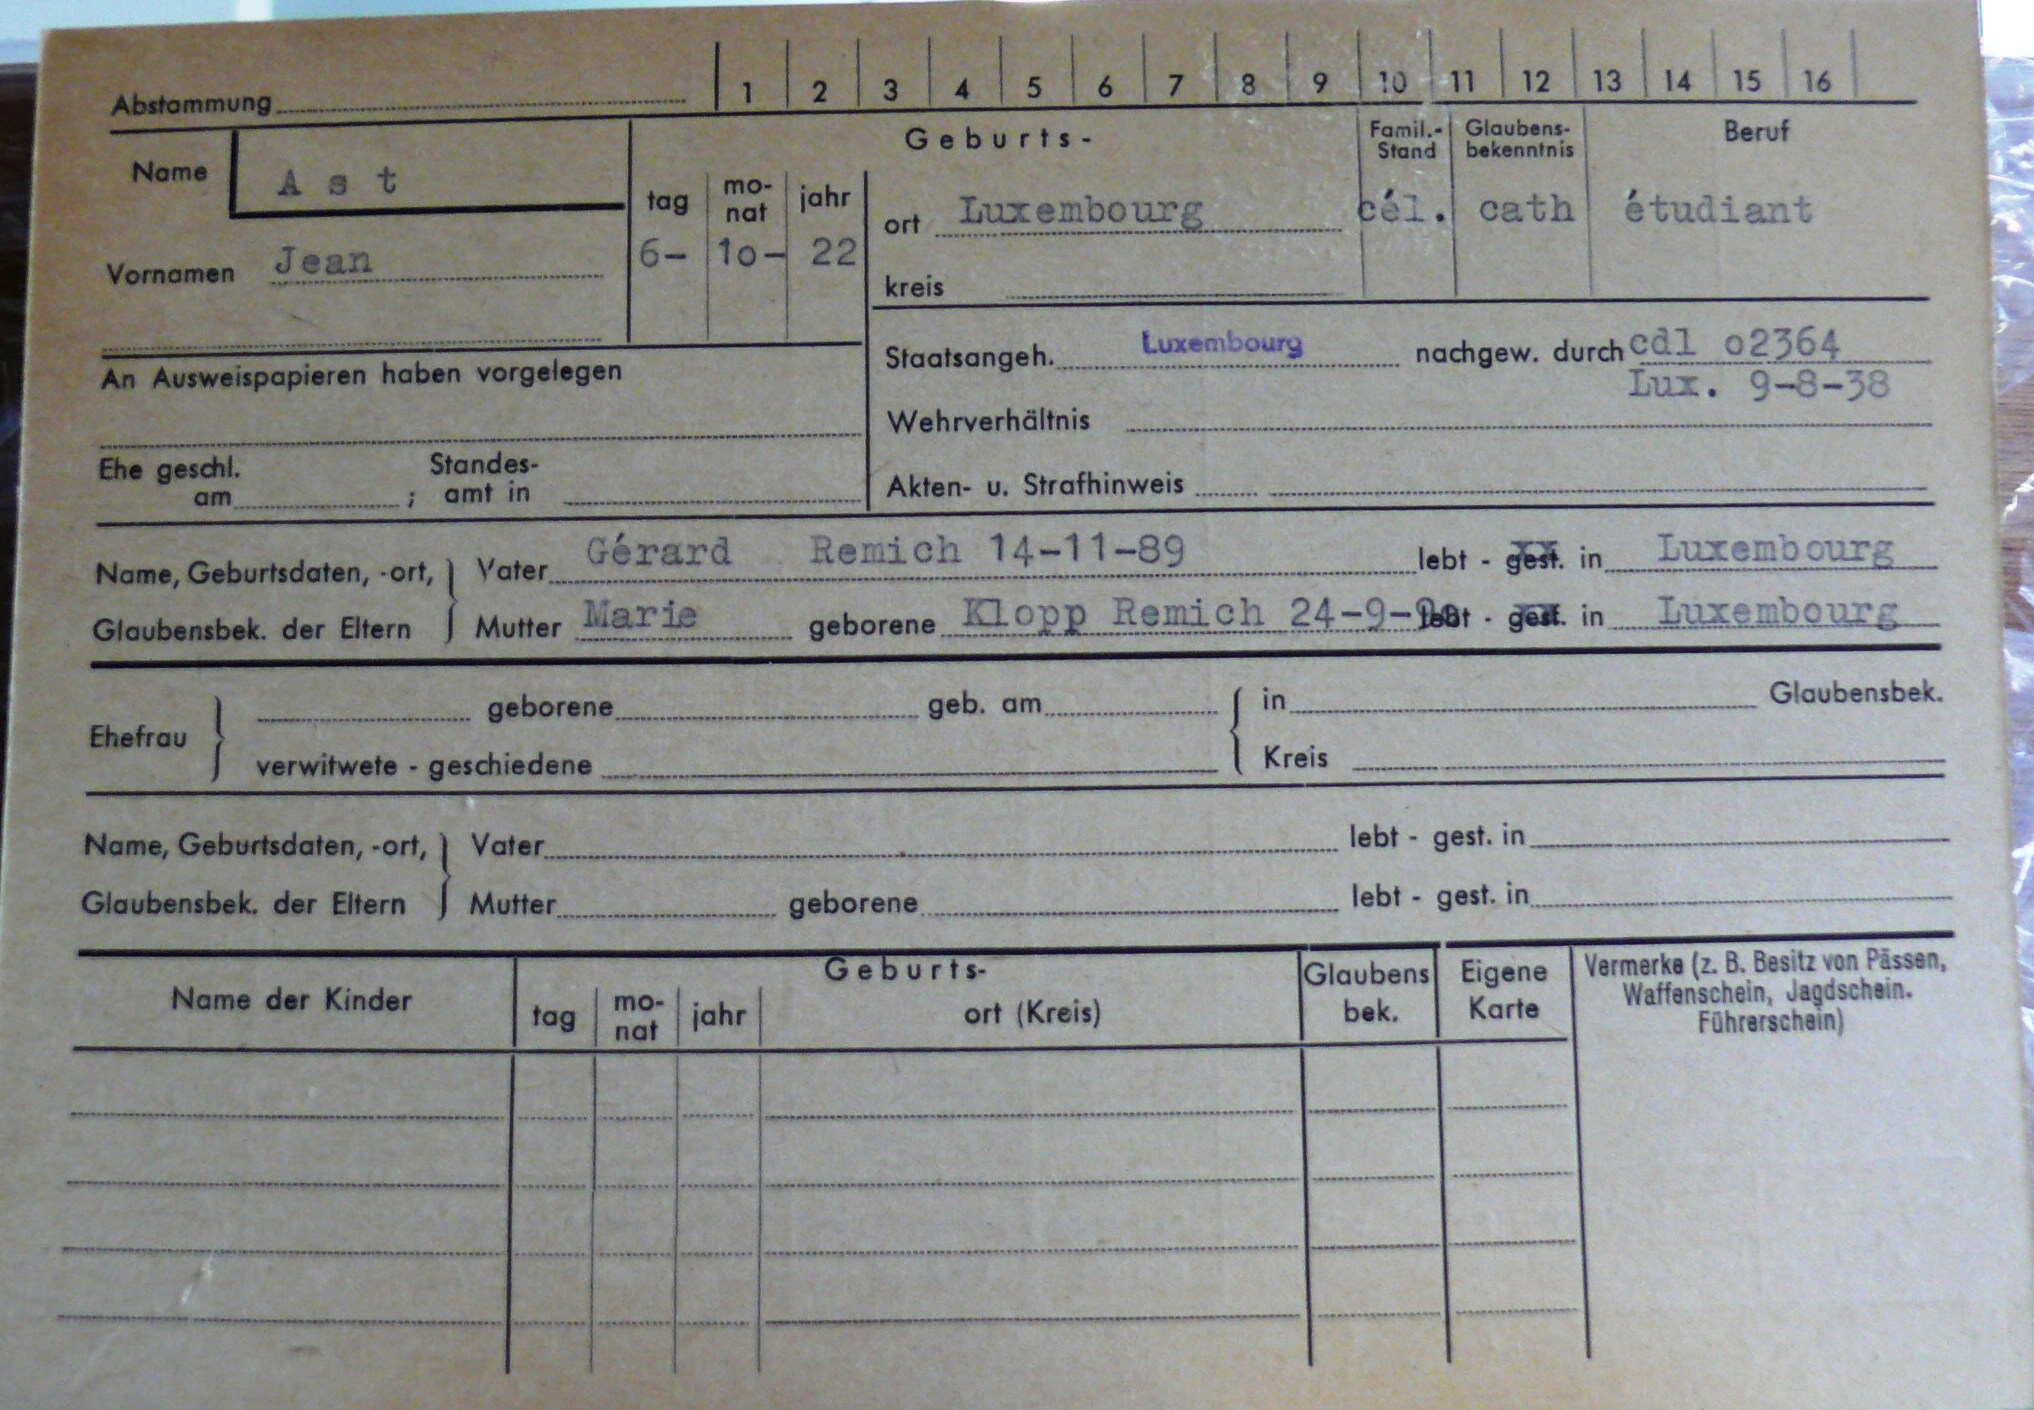 Abstammung 1 2 3 4 5 6 7 8 9 10 11 12 13 14 15 16
Name A s t
Vornamen Jean
Geburts-
tag mo-nat jahr
6- 1o- 22
ort Luxembourg
kreis
Famil.-Stand
cél.
Glaubens-bekenntnis
cath
Beruf
étudiant
An Ausweispapieren haben vorgelegen
Staatsangeh. Luxembourg nachgew. durch cdl o2364
Lux. 9-8-38
Wehrverhältnis
Ehe geschl. am ; Standes-amt in
Akten- u. Strafhinweis
Name, Geburtsdaten, -ort, Vater Gérard Remich 14-11-89 lebt - gest. in Luxembourg
Glaubensbek. der Eltern Mutter Marie geborene Klopp Remich 24-9- lebt - gest. in Luxembourg
Ehefrau geborene geb. am in Glaubensbek.
verwitwete - geschiedene Kreis
Name, Geburtsdaten, -ort, Vater lebt - gest. in
Glaubensbek. der Eltern Mutter geborene lebt - gest. in
Name der Kinder
Geburts-
tag mo-nat jahr ort (Kreis)
Glaubens bek.
Eigene Karte
Vermerke (z. B. Besitz von Pässen,
Waffenschein, Jagdschein.
Führerschein)